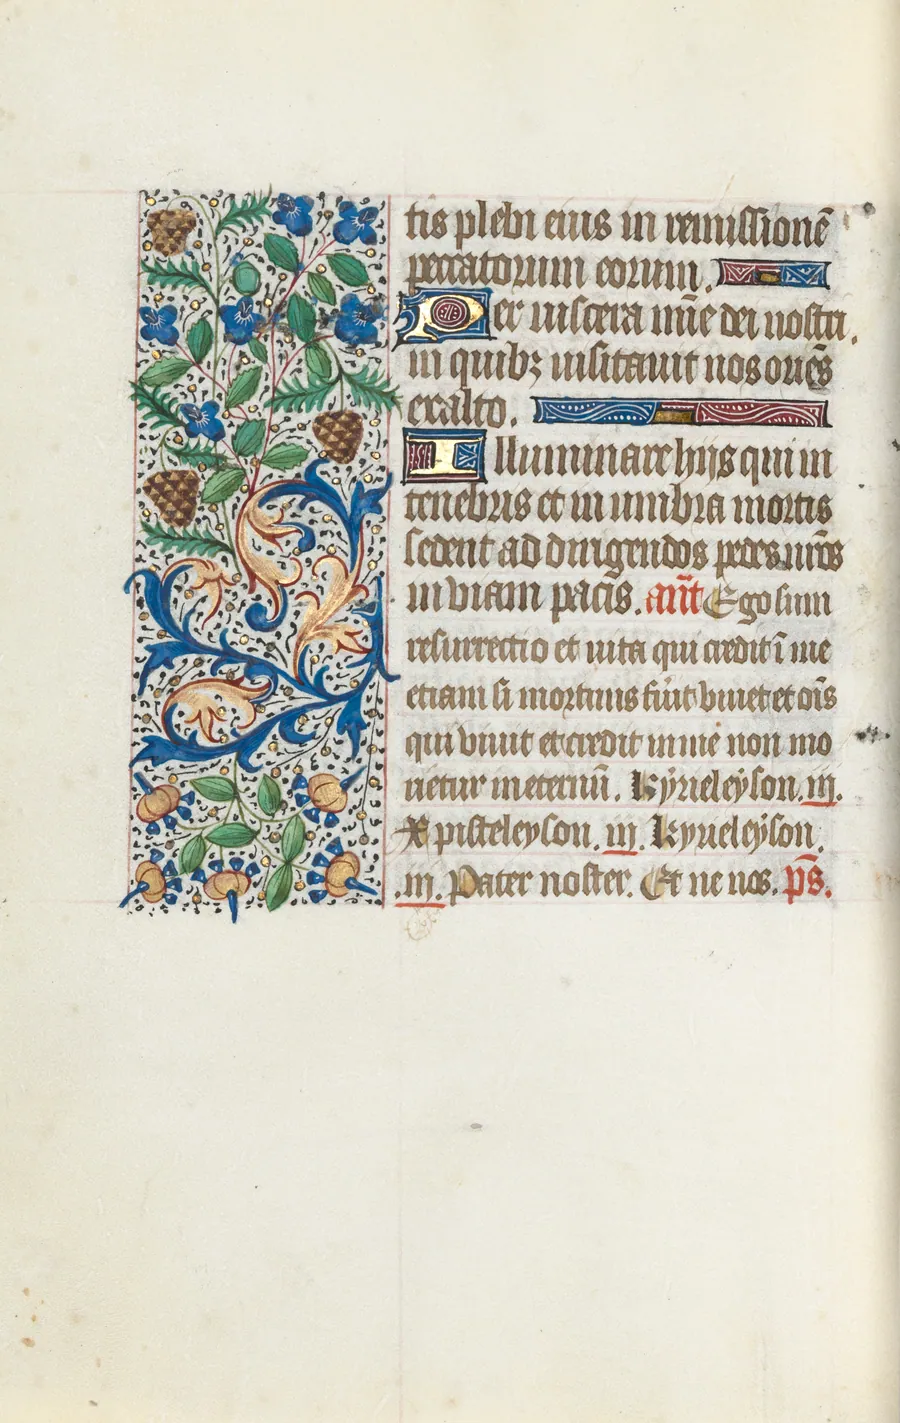 tis plebi eius in remissionē
peccatorum eorum.
Per uiscera mīe dei nostri.
in quibꝫ uisitauit nos oriēs
ex alto.
Illuminare hijs qui in
tenebris et in umbra mortis
sedent ad dirigendos pedes nr̄os
in viam pacis. an̄t Ego sum
resurrectio et uita qui credit ī me
etiam si mortuus fūit viuet et oīs
qui viuit et credit in me non mo
rietur in eternū. Kyrieleyson. iij.
Xpisteleyson. iij. Kyrieleyson.
.iij. Pater noster. Et ne nos. p̄s.